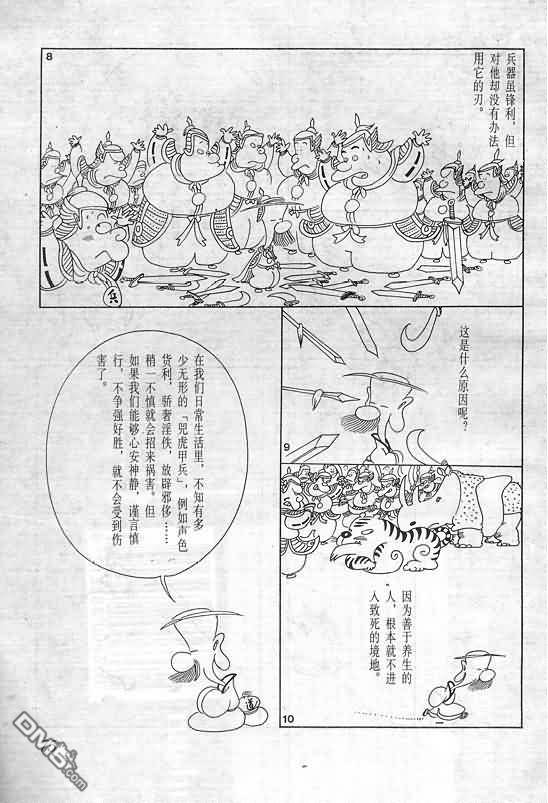 8
兵器虽锋利，但
对他却没有办法
用它的刃。
兵
这是什么原因呢？
9
因为善于养生的
人，根本就不进
入致死的境地。
10
在我们日常生活里，不知有多
少无形的「兕虎甲兵」，例如声色
货利，骄奢淫佚，放辟邪侈……
稍一不慎就会招来祸害。但
如果我们能够心安神静，谨言慎
行，不争强好胜，就不会受到伤
害了。
道